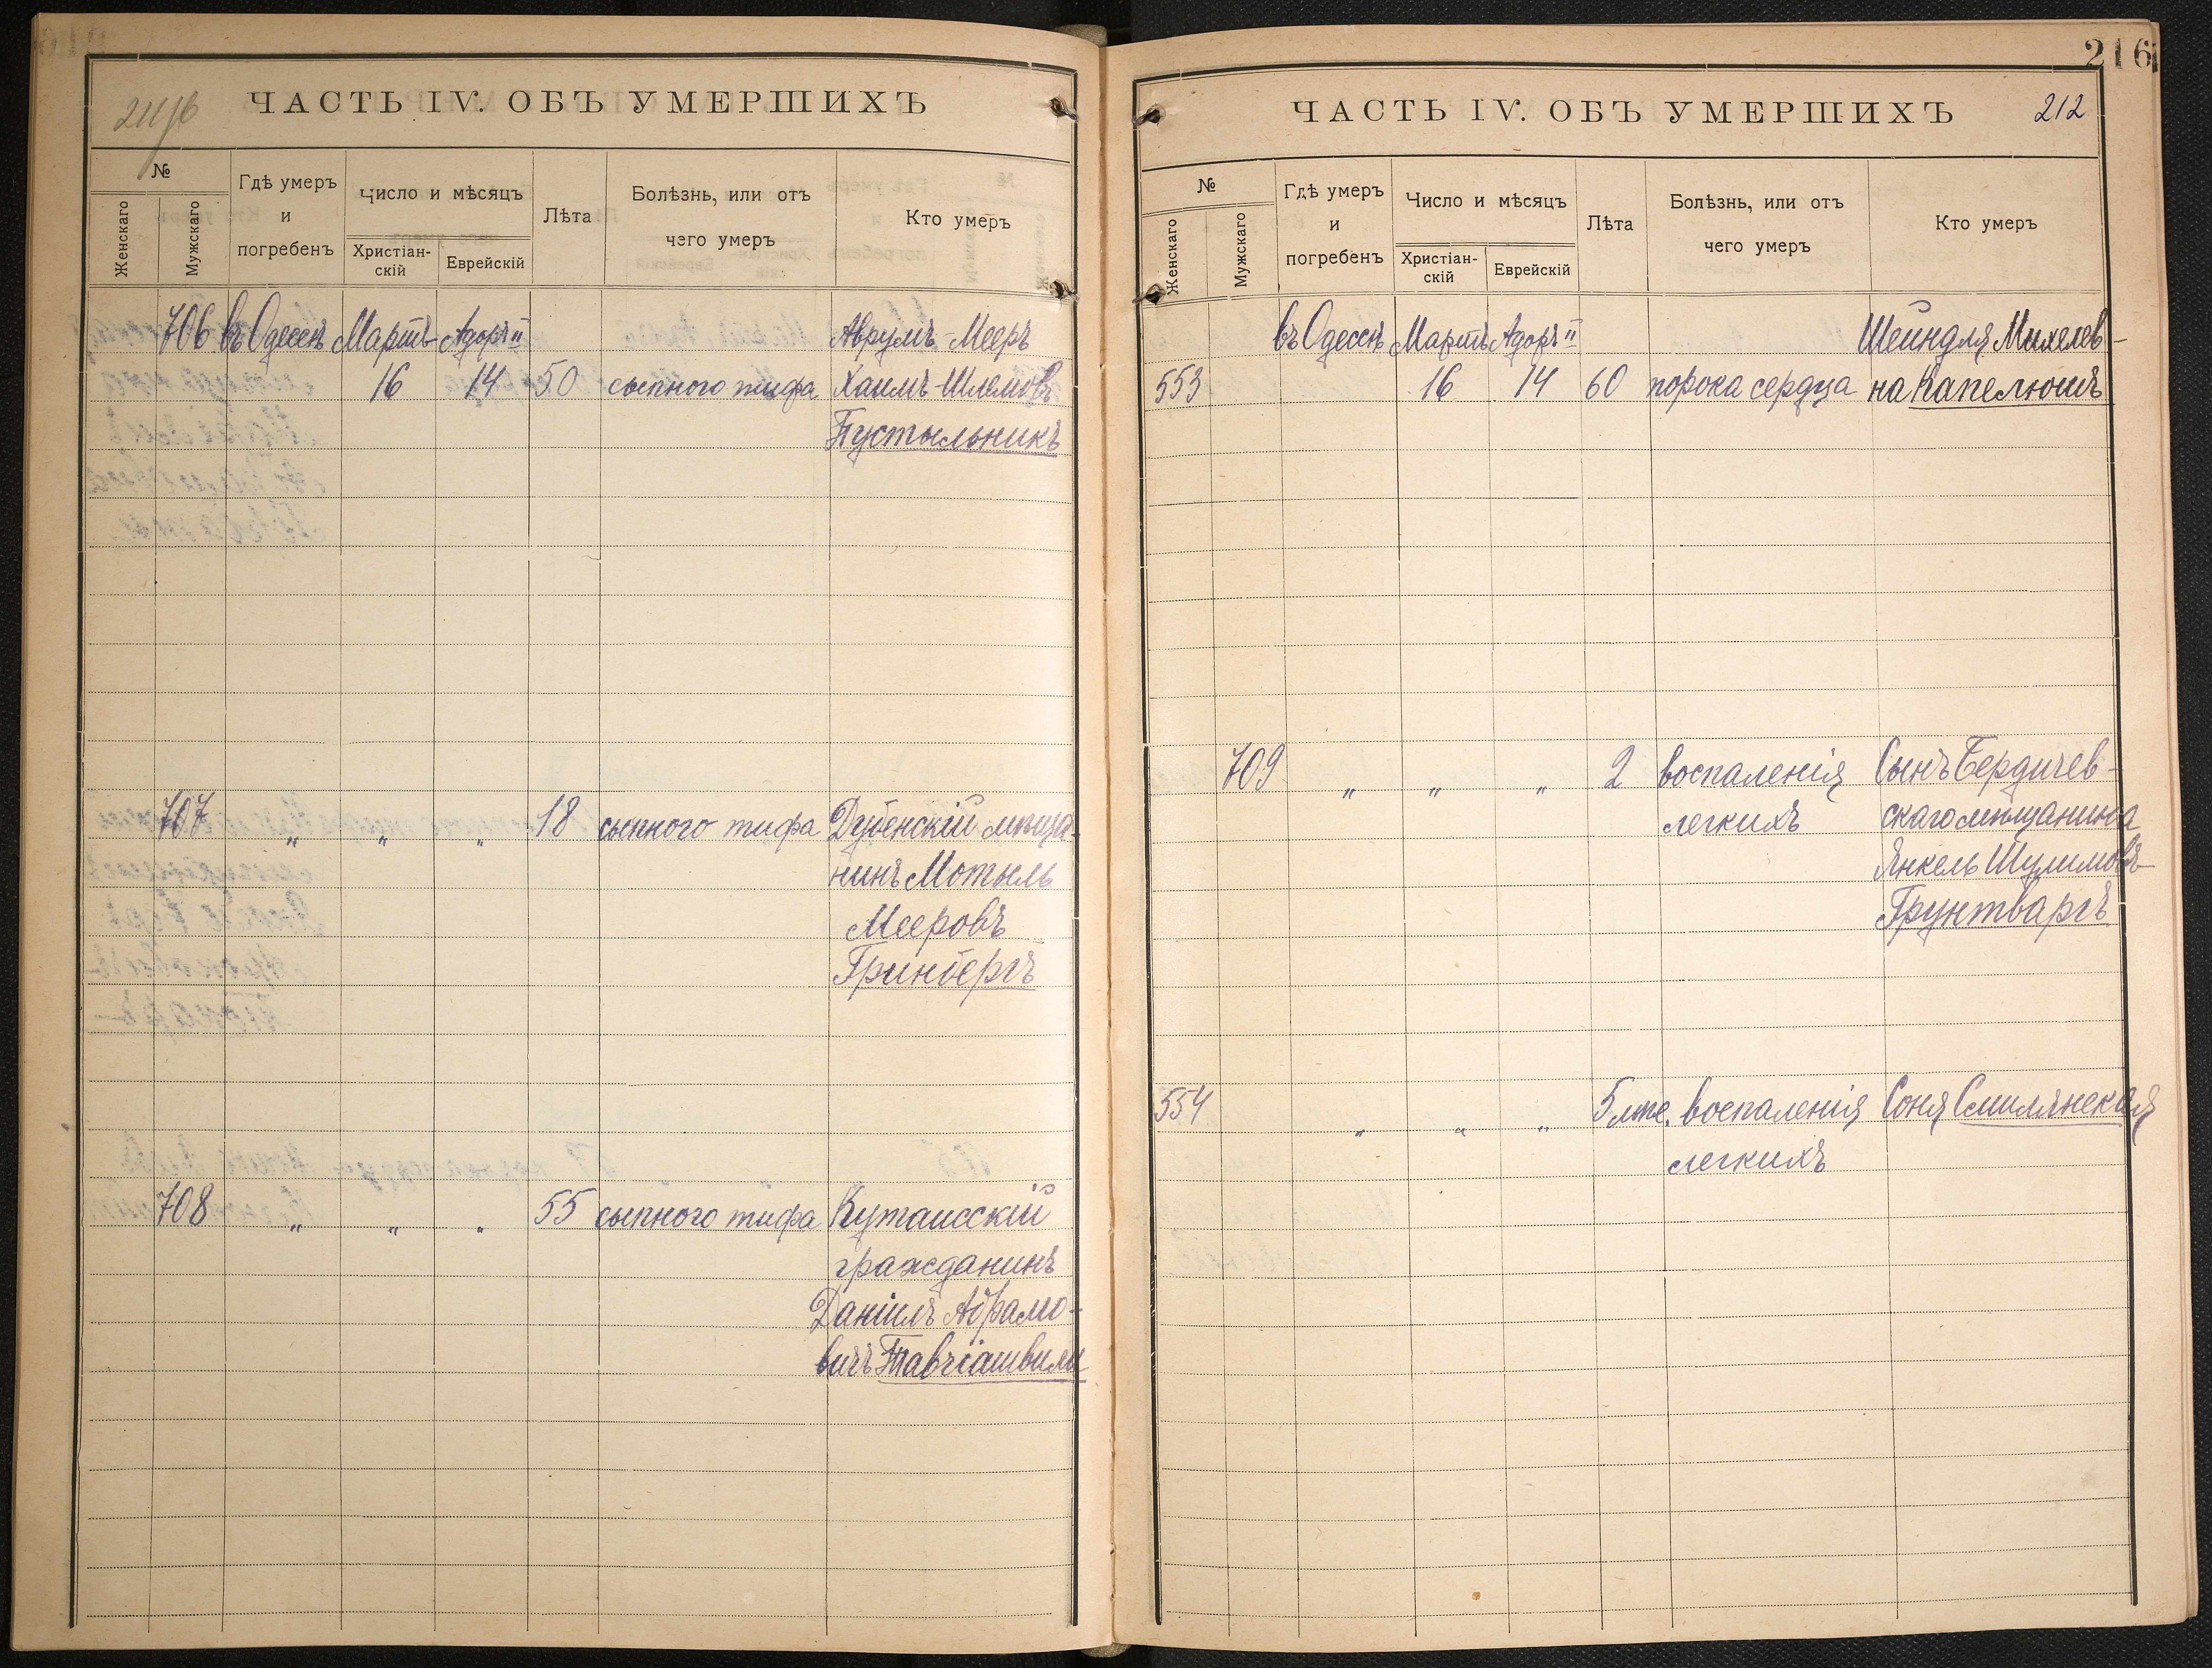 216
ЧАСТЬ IV. ОБЪ УМЕРШИХЪ
№
Женскаго
Мужскаго
Гдѣ умеръ
и
погребенъ
Число и мѣсяцъ
Христіан-
скій
Еврейскій
Лѣта
Болѣзнь, или отъ
чего умеръ
Кто умеръ
706 въ Одессѣ Мартъ Адоръ II Аврумъ-Мееръ
16 14 50 сыпного тифа Хаимъ Шлемовъ
Пустыльникъ
707 „ „ „ 18 сыпного тифа Дубенскій мѣща-
нинъ Мотыль
Мееровъ
Гринбергъ
708 „ „ „ 55 сыпного тифа Кутаисскій
гражданинъ
Даніилъ Абрамо-
вичъ Тавчіашвили
ЧАСТЬ IV. ОБЪ УМЕРШИХЪ 212
№
Женскаго
Мужскаго
Гдѣ умеръ
и
погребенъ
Число и мѣсяцъ
Христіан-
скій
Еврейскій
Лѣта
Болѣзнь, или отъ
чего умеръ
Кто умеръ
въ Одессѣ Мартъ Адоръ II Шейндля Михелев-
553 16 14 60 порока сердца на Капелюшъ
709 „ „ „ 2 воспаленія Сынъ Бердичев-
легкихъ скаго мѣщанина
Янкель Шулимовъ
Грунтваргъ
554 „ „ „ 5 мѣс. воспаленія Соня Смилянская
легкихъ